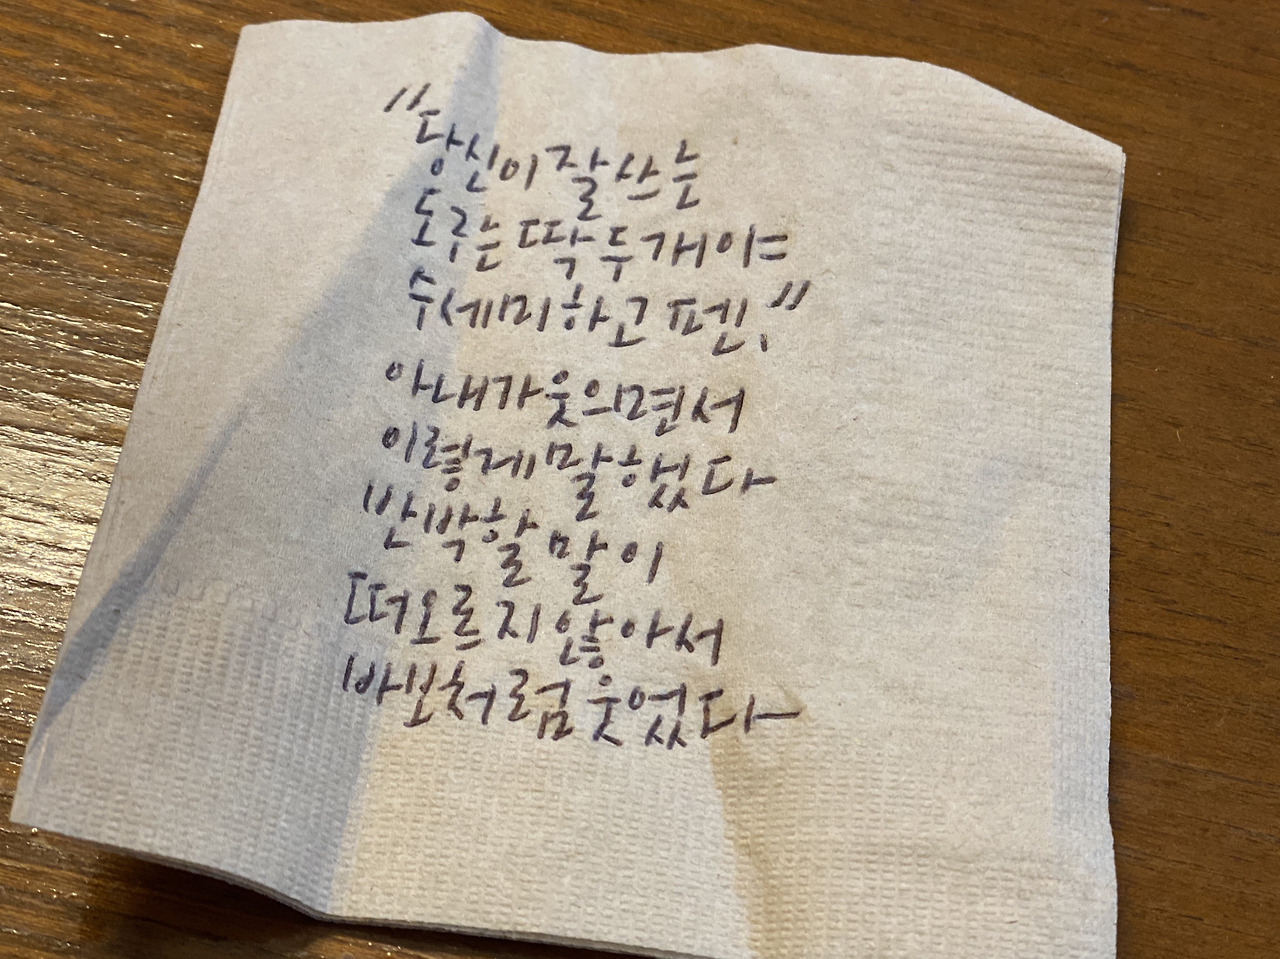 "당신이 잘 쓰는
도구는 딱 두 개야
수세미하고 펜."
아내가 웃으면서
이렇게 말했다
반박할 말이
떠오르지 않아서
바보처럼 웃었다